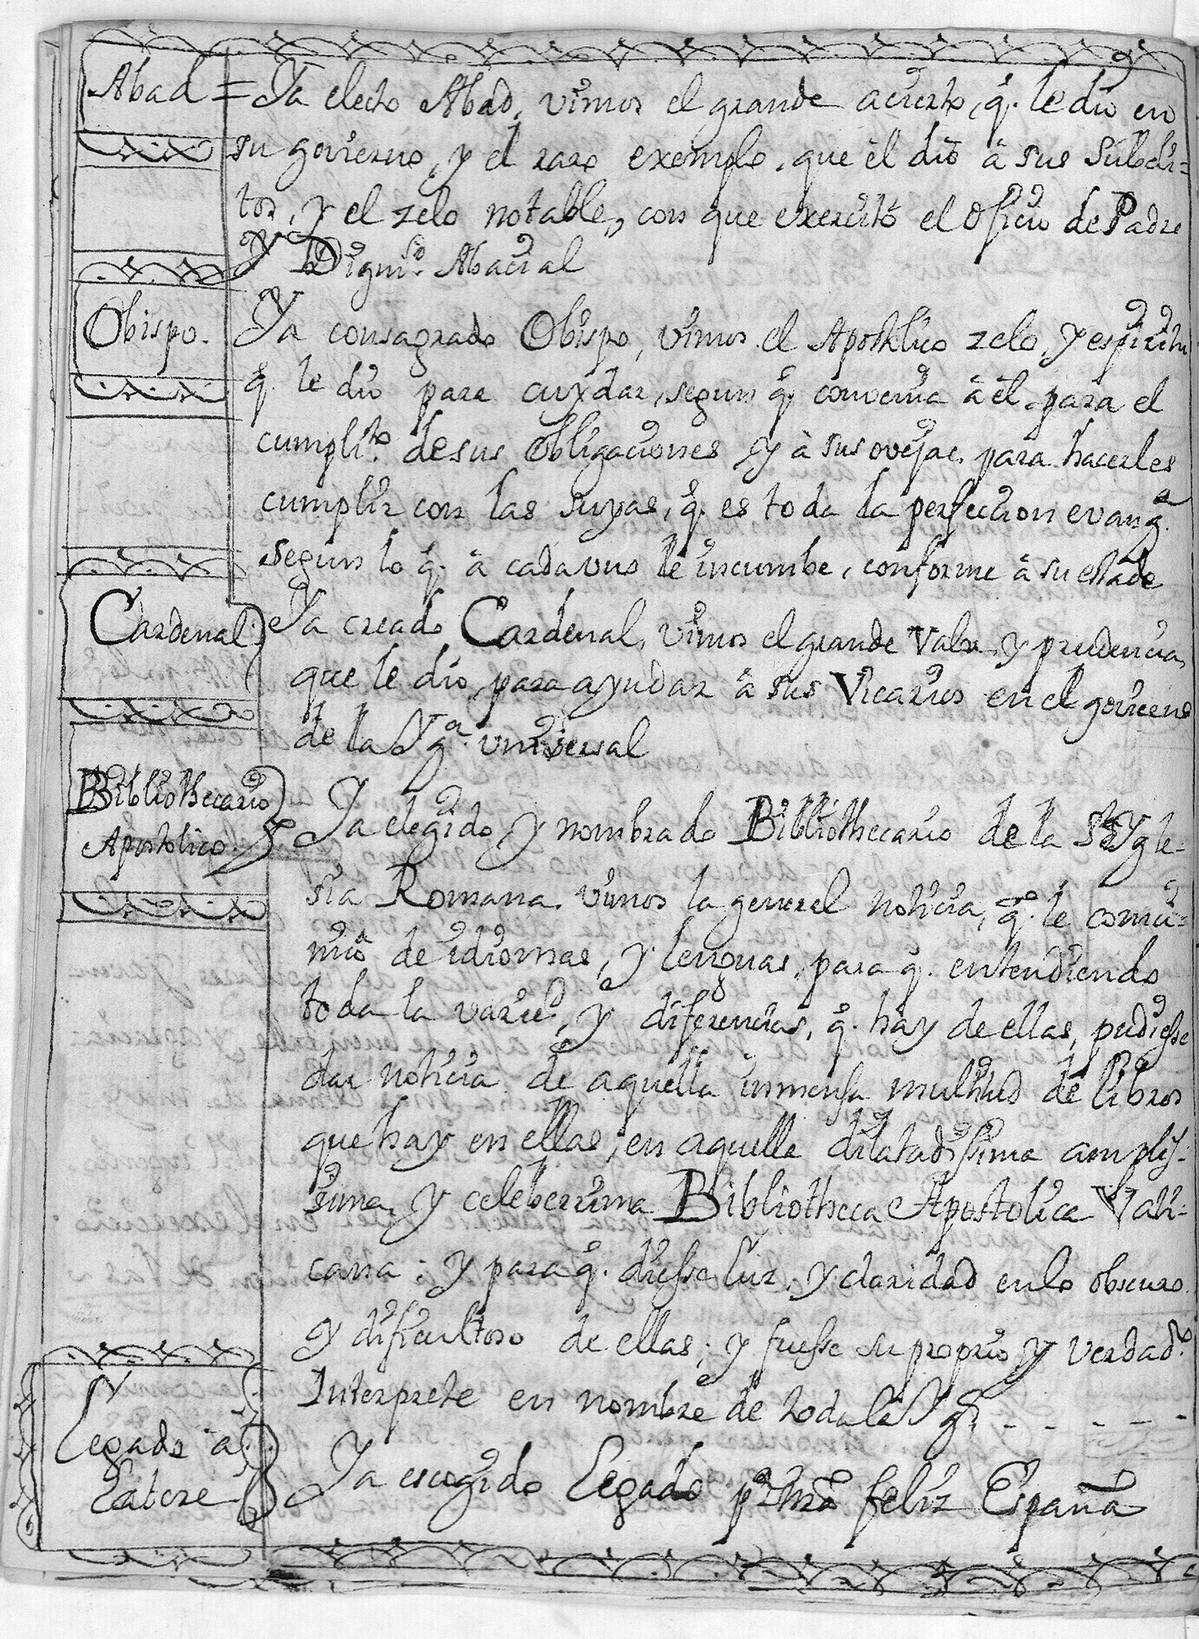 Abad = Ya electo Abad, vimos el grande acierto, q. le dio en
su govierno, y el raro exemplo, que él dió à sus Subdi=
tos, y el zelo notable, con que exercitó el Oficio de Padre
y Digni.d Abacial
Obispo. Ya consagrado Obispo, vimos el Apostolico zelo, y espiritu
q. le dio para cuydar, segun q. convenia à él, para el
cumpli.to de sus Obligaciones y à sus ovejas, para hacerles
cumplir con las suyas, q. es toda la perfeccion evang.a
segun lo q. à cada uno le incumbe, conforme à su estado
Cardenal. Ya creado Cardenal, vimos el grande Valor, y prudencia,
que le dio, para ayudar à sus Vicarios en el govierno
de la Yg.a universal
Bibliothecario
Apostolico. Ya elegido y nombrado Bibliothecario de la S.ta Ygle-
sia Romana. vimos la general noticia, q. le comu=
nicó de idiomas, y lenguas, para q. entendiendo
toda la varie.d, y diferencias, q. hay de ellas, pudiesse
dar noticia de aquella immensa multitud de libros
que hay en ellas, en aquella dilatadissima amplis-
sima, y celeberrima Bibliotheca Apostolica Vati-
cana; y para q. diesse luz, y claridad en lo obscuro
y dificultoso de ellas; y fuesse su proprio y verdad.o
Interprete en nombre de toda la Yg.a - - - - -
Legado a
Latere Ya escogido Legado p.a nra feliz España